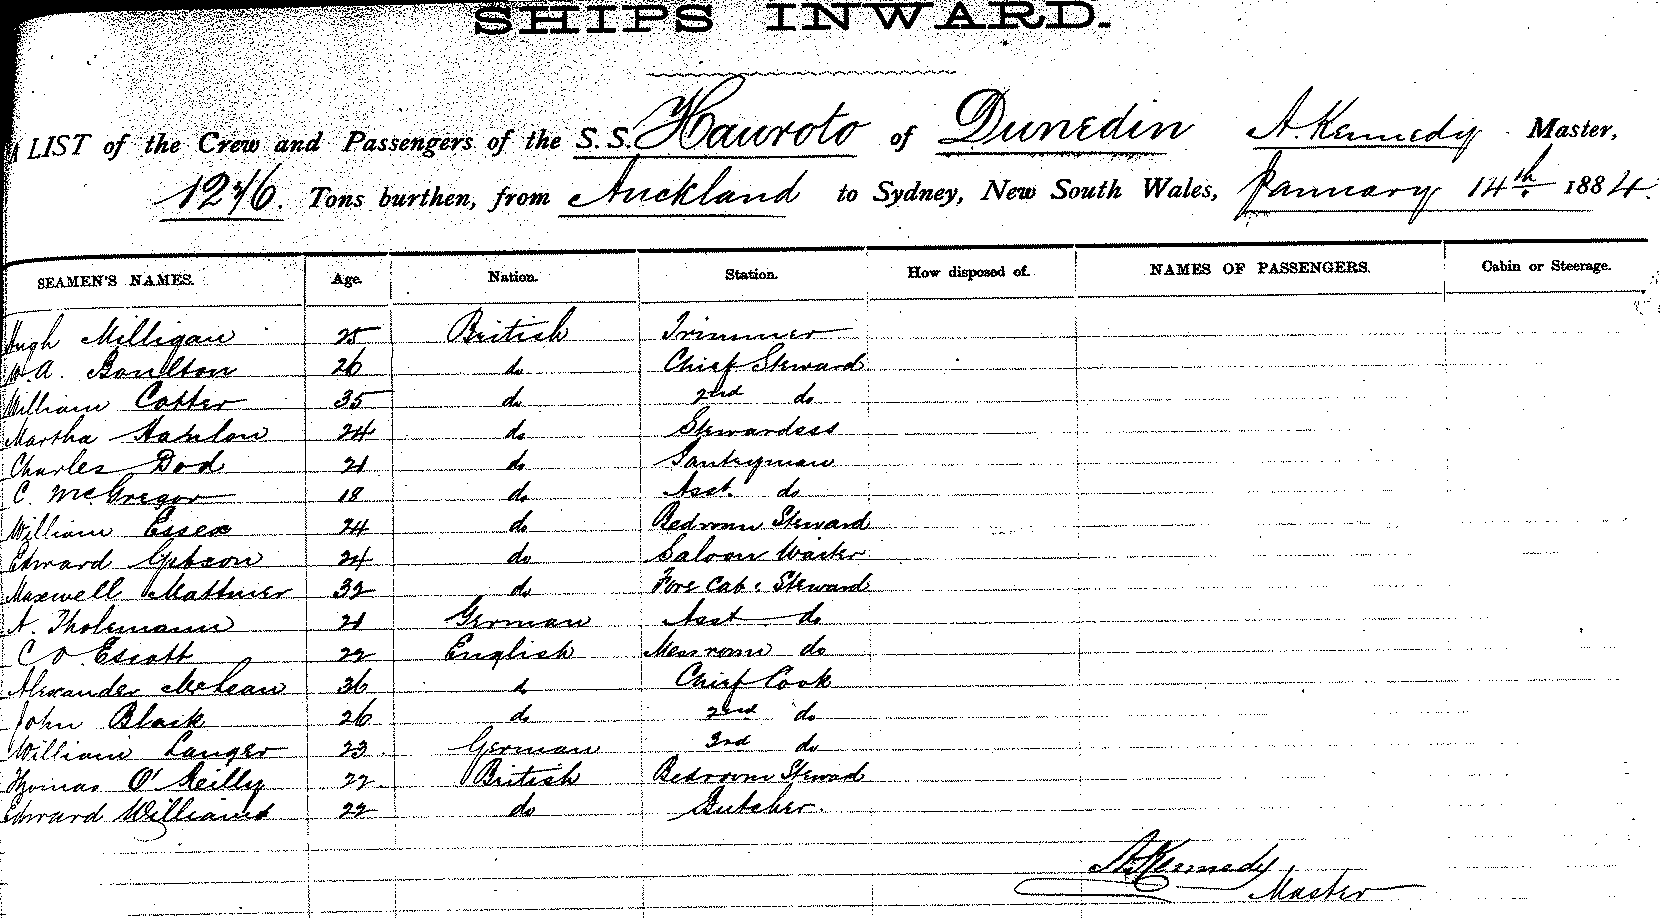 SHIPS INWARD.
A LIST of the Crew and Passengers of the S.S. Hauroto of Dunedin A. Kennedy Master,
1276. Tons burthen, from Auckland to Sydney, New South Wales, January 14th 1884.
SEAMEN'S NAMES. Age. Nation. Station. How disposed of. NAMES OF PASSENGERS. Cabin or Steerage.
Hugh Milligan 25 British Trimmer
W. A. Boulton 26 do Chief Steward
William Cotter 35 do 2nd do
Martha Hanlon 24 do Stewardess
Charles Dod 21 do Pantryman
C. McGregor 18 do Asst. do
William Essex 24 do Bedroom Steward
Edward Gibson 24 do Saloon Waiter
Maxwell 32 do Fore Cab: Steward
A. Tholemann 21 German Asst do
C O Escott 22 English Messroom do
Alexander McLean 36 do Chief Cook
John Black 26 do 2nd do
William Langer 23 German 3rd do
Thomas O'Reilly 22 British Bedroom Steward
Edward Williams 22 do Butcher.
A. Kennedy
Master